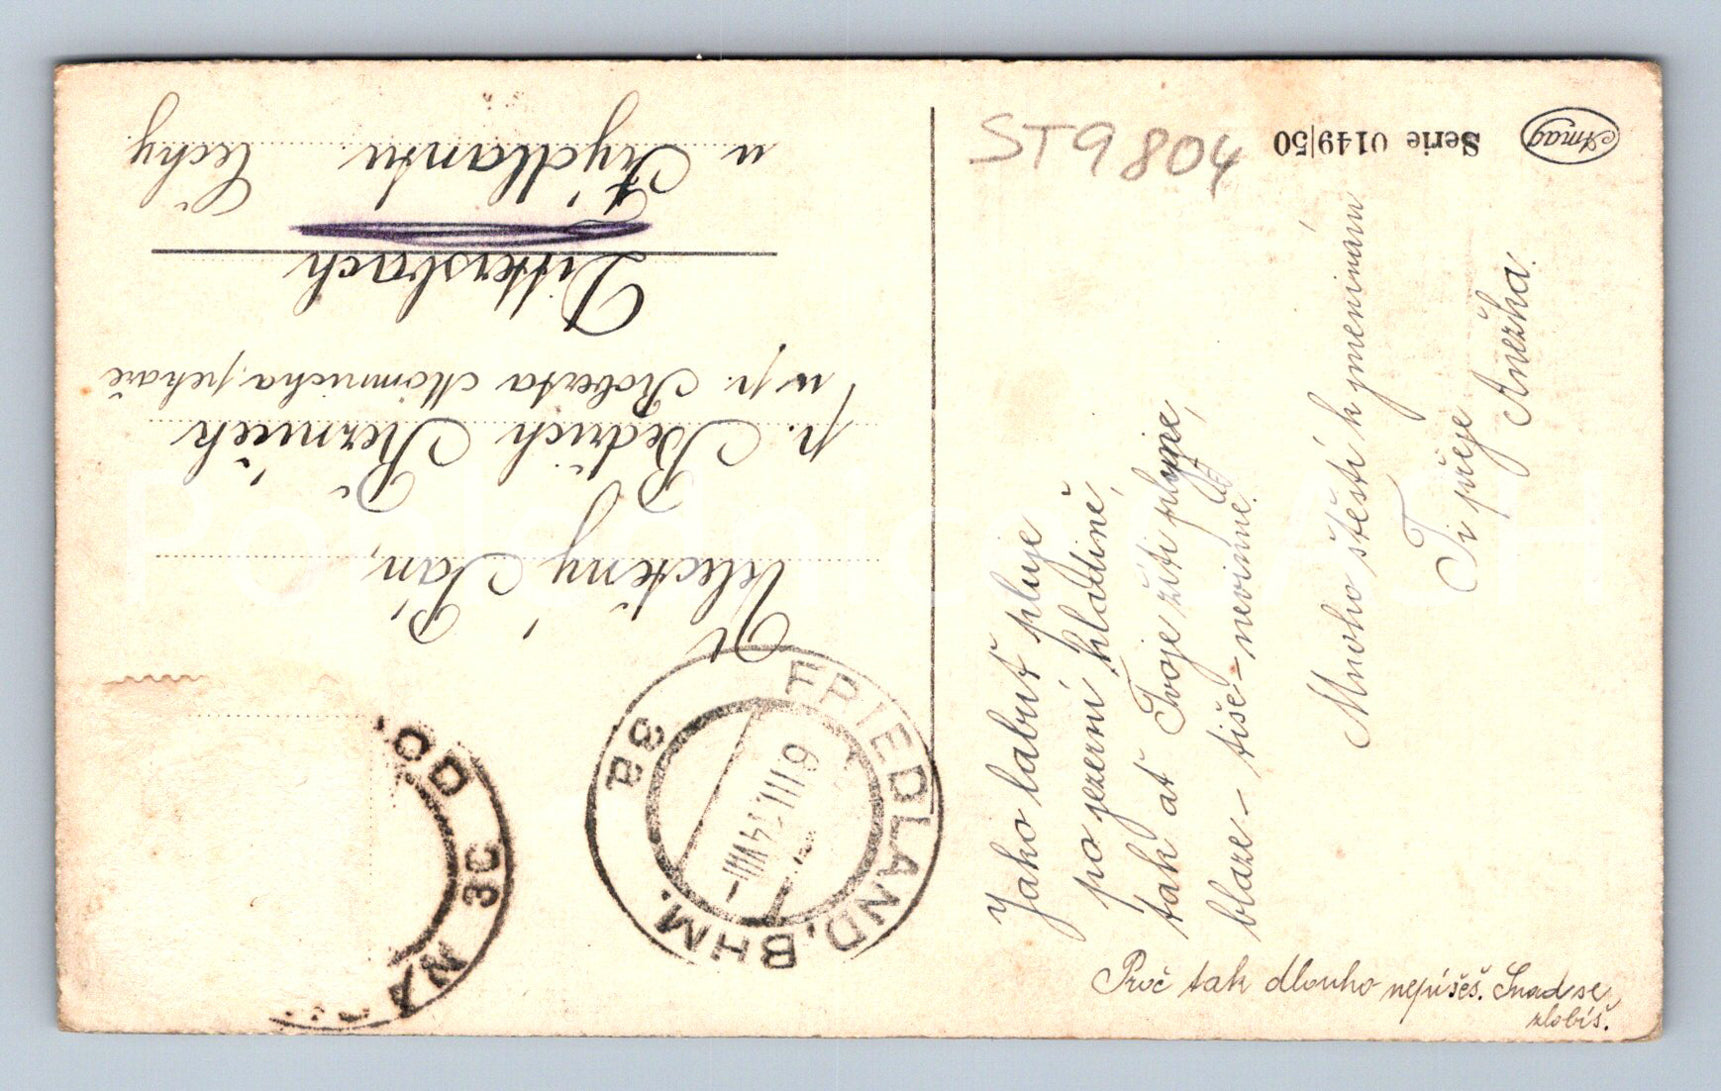 Amag
Serie 0149/50
ST9804
Jako labuť pluje
po jezerní hladině,
tak ať Tvoje žití plyne,
blaze – tiše – nevinně.
Mnoho štěstí k jmeninám
Ti přeje
Anežka.
Proč tak dlouho nepíšeš. Snad se
zlobíš.
Velectěný Pán,
p. Bedřich Řezníček
u p. Roberta pekaře
Dittersbach
u Frýdlantu Čechy
FRIEDLAND, BHM.
3a
6 III 14 VIII